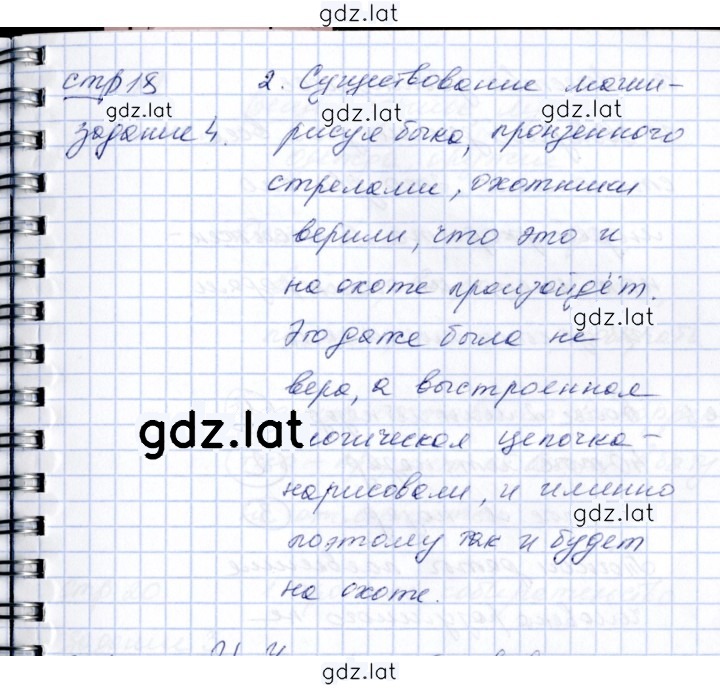 gdz.lat
стр 18 2. Существование маги-
gdz.lat gdz.lat
задание 4. рисуя быка, пронзённого
стрелами, охотники
верили, что это и
на охоте произойдёт.
gdz.lat
Это даже была не
вера, а выстроенная
gdz.lat
логическая цепочка -
нарисовали, и именно
gdz.lat
поэтому так и будет
на охоте.
gdz.lat